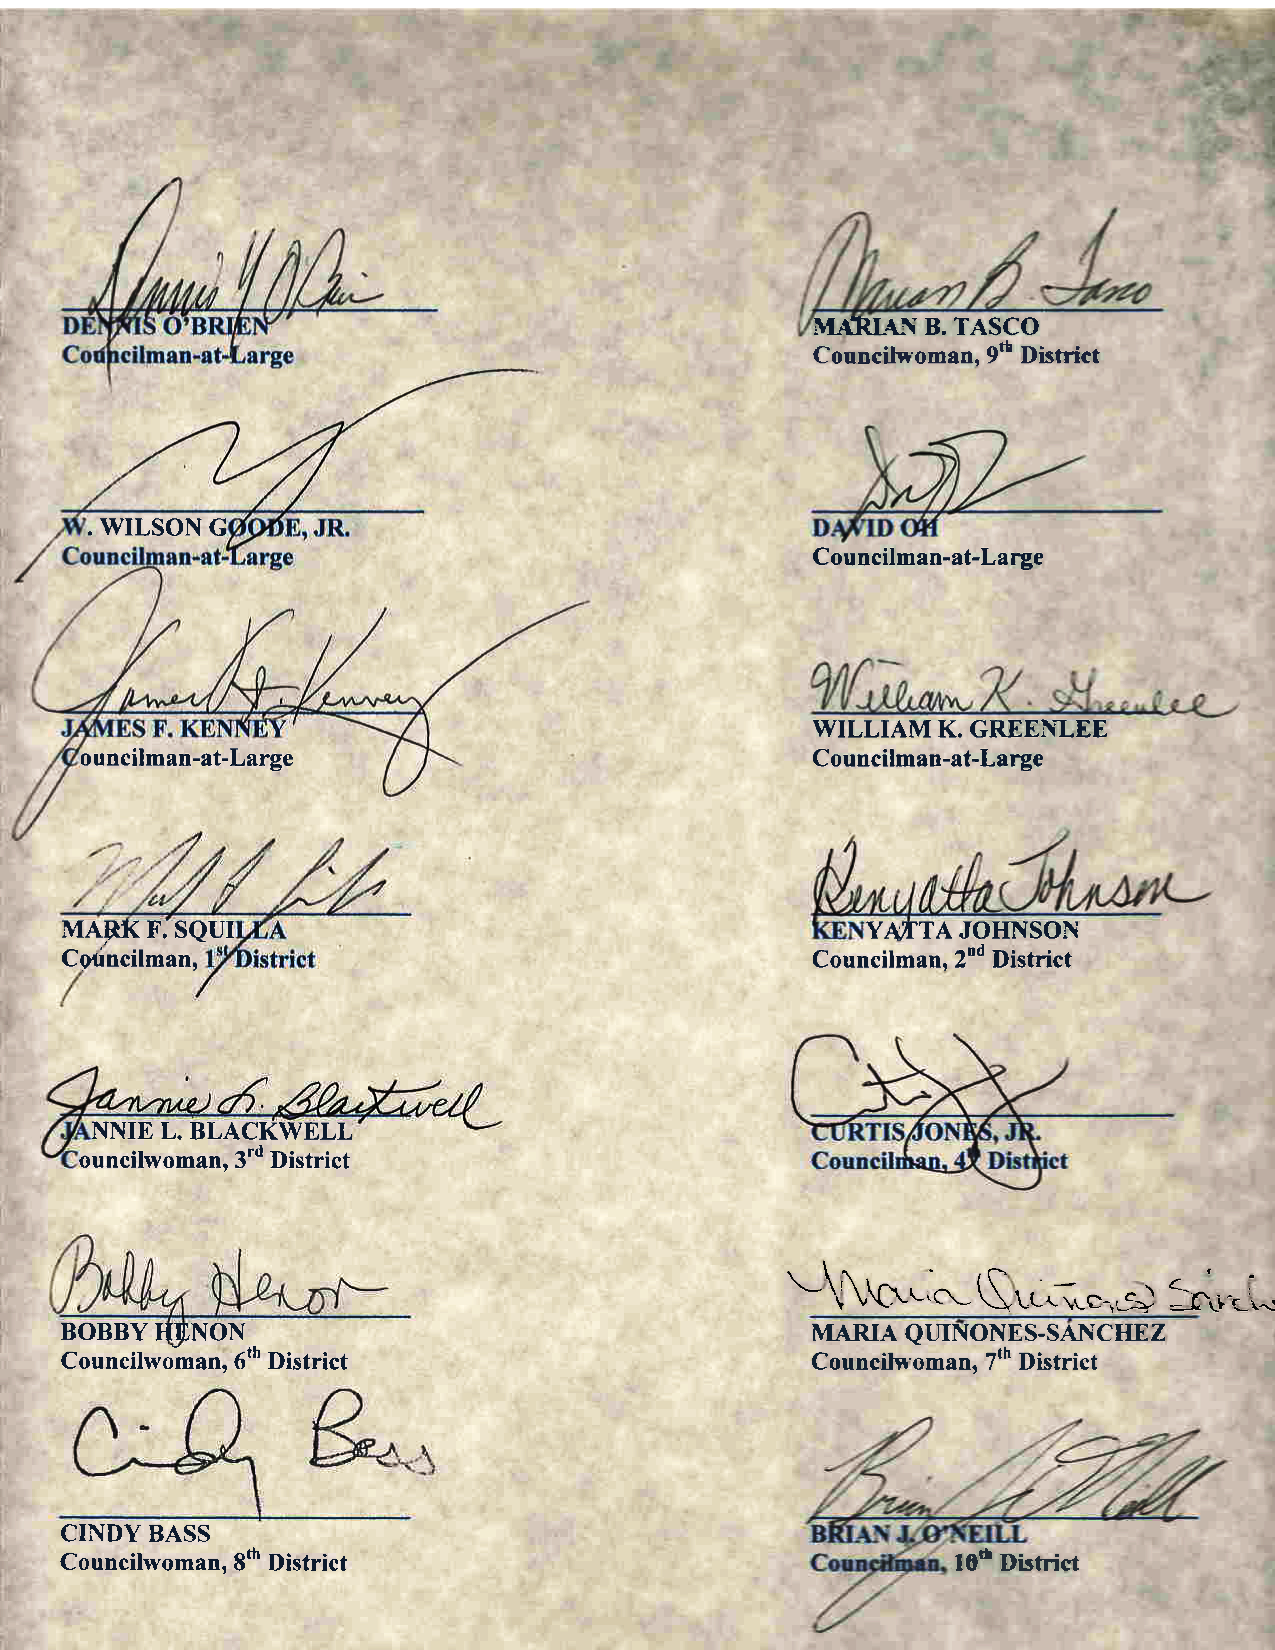 Dennis Y O'Brien
DENNIS O'BRIEN
Councilman-at-Large
Marian B. Tasco
MARIAN B. TASCO
Councilwoman, 9th District
W. WILSON GOODE, JR.
Councilman-at-Large
DAVID OH
Councilman-at-Large
James F. Kenney
JAMES F. KENNEY
Councilman-at-Large
William K. Greenlee
WILLIAM K. GREENLEE
Councilman-at-Large
MARK F. SQUILLA
Councilman, 1st District
Kenyatta Johnson
KENYATTA JOHNSON
Councilman, 2nd District
Jannie L. Blackwell
JANNIE L. BLACKWELL
Councilwoman, 3rd District
CURTIS JONES, JR.
Councilman, 4th District
Bobby Henon
BOBBY HENON
Councilwoman, 6th District
Maria Quiñones Sánch
MARIA QUIÑONES-SÁNCHEZ
Councilwoman, 7th District
Cindy Bass
CINDY BASS
Councilwoman, 8th District
Brian J. O'Neill
BRIAN J. O'NEILL
Councilman, 10th District